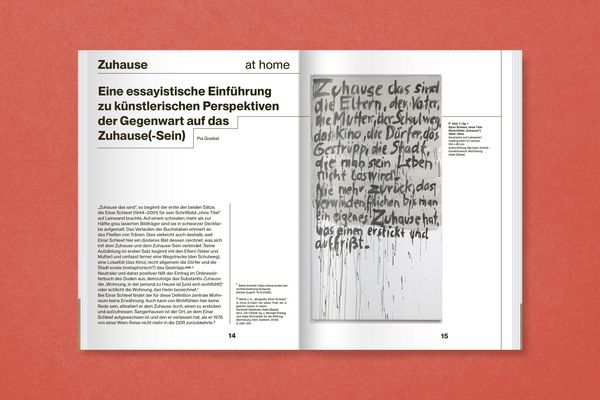 Zuhause
at home
Eine essayistische Einführung
zu künstlerischen Perspektiven
der Gegenwart auf das
Zuhause(-Sein)
Pia Goebel
„Zuhause das sind“, so beginnt der erste der beiden Sätze,
die Einar Schleef (1944–2001) für sein Schriftbild „ohne Titel“
auf Leinwand brachte. Auf einem schmalen, mehr als zur
Hälfte grau lasierten Bildträger sind sie in schwarzer Deckfar-
be aufgemalt. Das Verlaufen der Buchstaben erinnert an
das Fließen von Tränen. Dies vielleicht auch deshalb, weil
Einar Schleef hier ein düsteres Bild dessen zeichnet, was sich
mit dem Zuhause und dem Zuhause-Sein verbindet. Seine
Aufzählung im ersten Satz beginnt mit den Eltern (Vater und
Mutter) und umfasst ferner eine Wegstrecke (den Schulweg),
eine Lokalität (das Kino), recht allgemein die Dörfer und die
Stadt sowie (metaphorisch?) das Gestrüpp.
Neutraler und daher positiver fällt der Eintrag im Onlinewör-
terbuch des Duden aus, demzufolge das Substantiv Zuhause
die „Wohnung, in der jemand zu Hause ist [und sich wohlfühlt]“
oder schlicht die Wohnung, das Heim bezeichnet.
Bei Einar Schleef findet der für diese Definition zentrale Wohn-
raum keine Erwähnung. Auch kann von Wohlfühlen hier keine
Rede sein, attestiert er dem Zuhause doch, einen zu ersticken
und aufzufressen. Sangerhausen ist der Ort, an dem Einar
Schleef aufgewachsen ist und den er verlassen hat, als er 1976
von einer Wien-Reise nicht mehr in die DDR zurückkehrte.
14
Zuhause das sind
die Eltern, der Vater,
die Mutter, der Schulweg,
das Kino, die Dörfer, das
Gestrüpp, die Stadt,
die man sein Leben
nicht los wird.
Nie mehr zurück, das
verwinden, fliehen bis man
ein eigenes Zuhause hat,
was einen erstickt und
auffrißt.
15